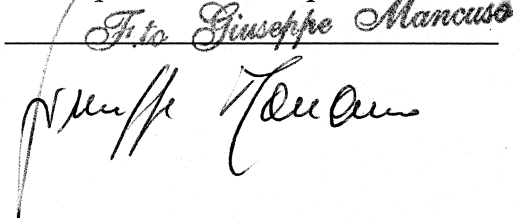 F.to Giuseppe Mancuso
Giuseppe Mancuso